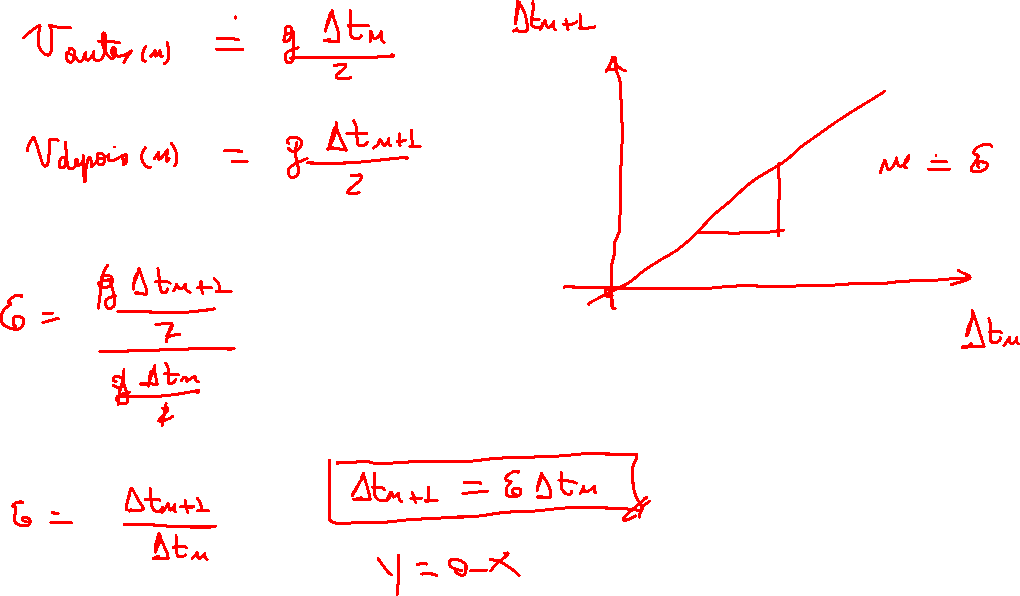 Vantes(n) ≐ g Δtn / 2
Vdepois(n) = g Δtn+1 / 2
ε = (g Δtn+1 / 2) / (g Δtn / 2)
ε = Δtn+1 / Δtn
Δtn+1 = ε Δtn
y = a x
Δtn+1
m ≐ ε
Δtn